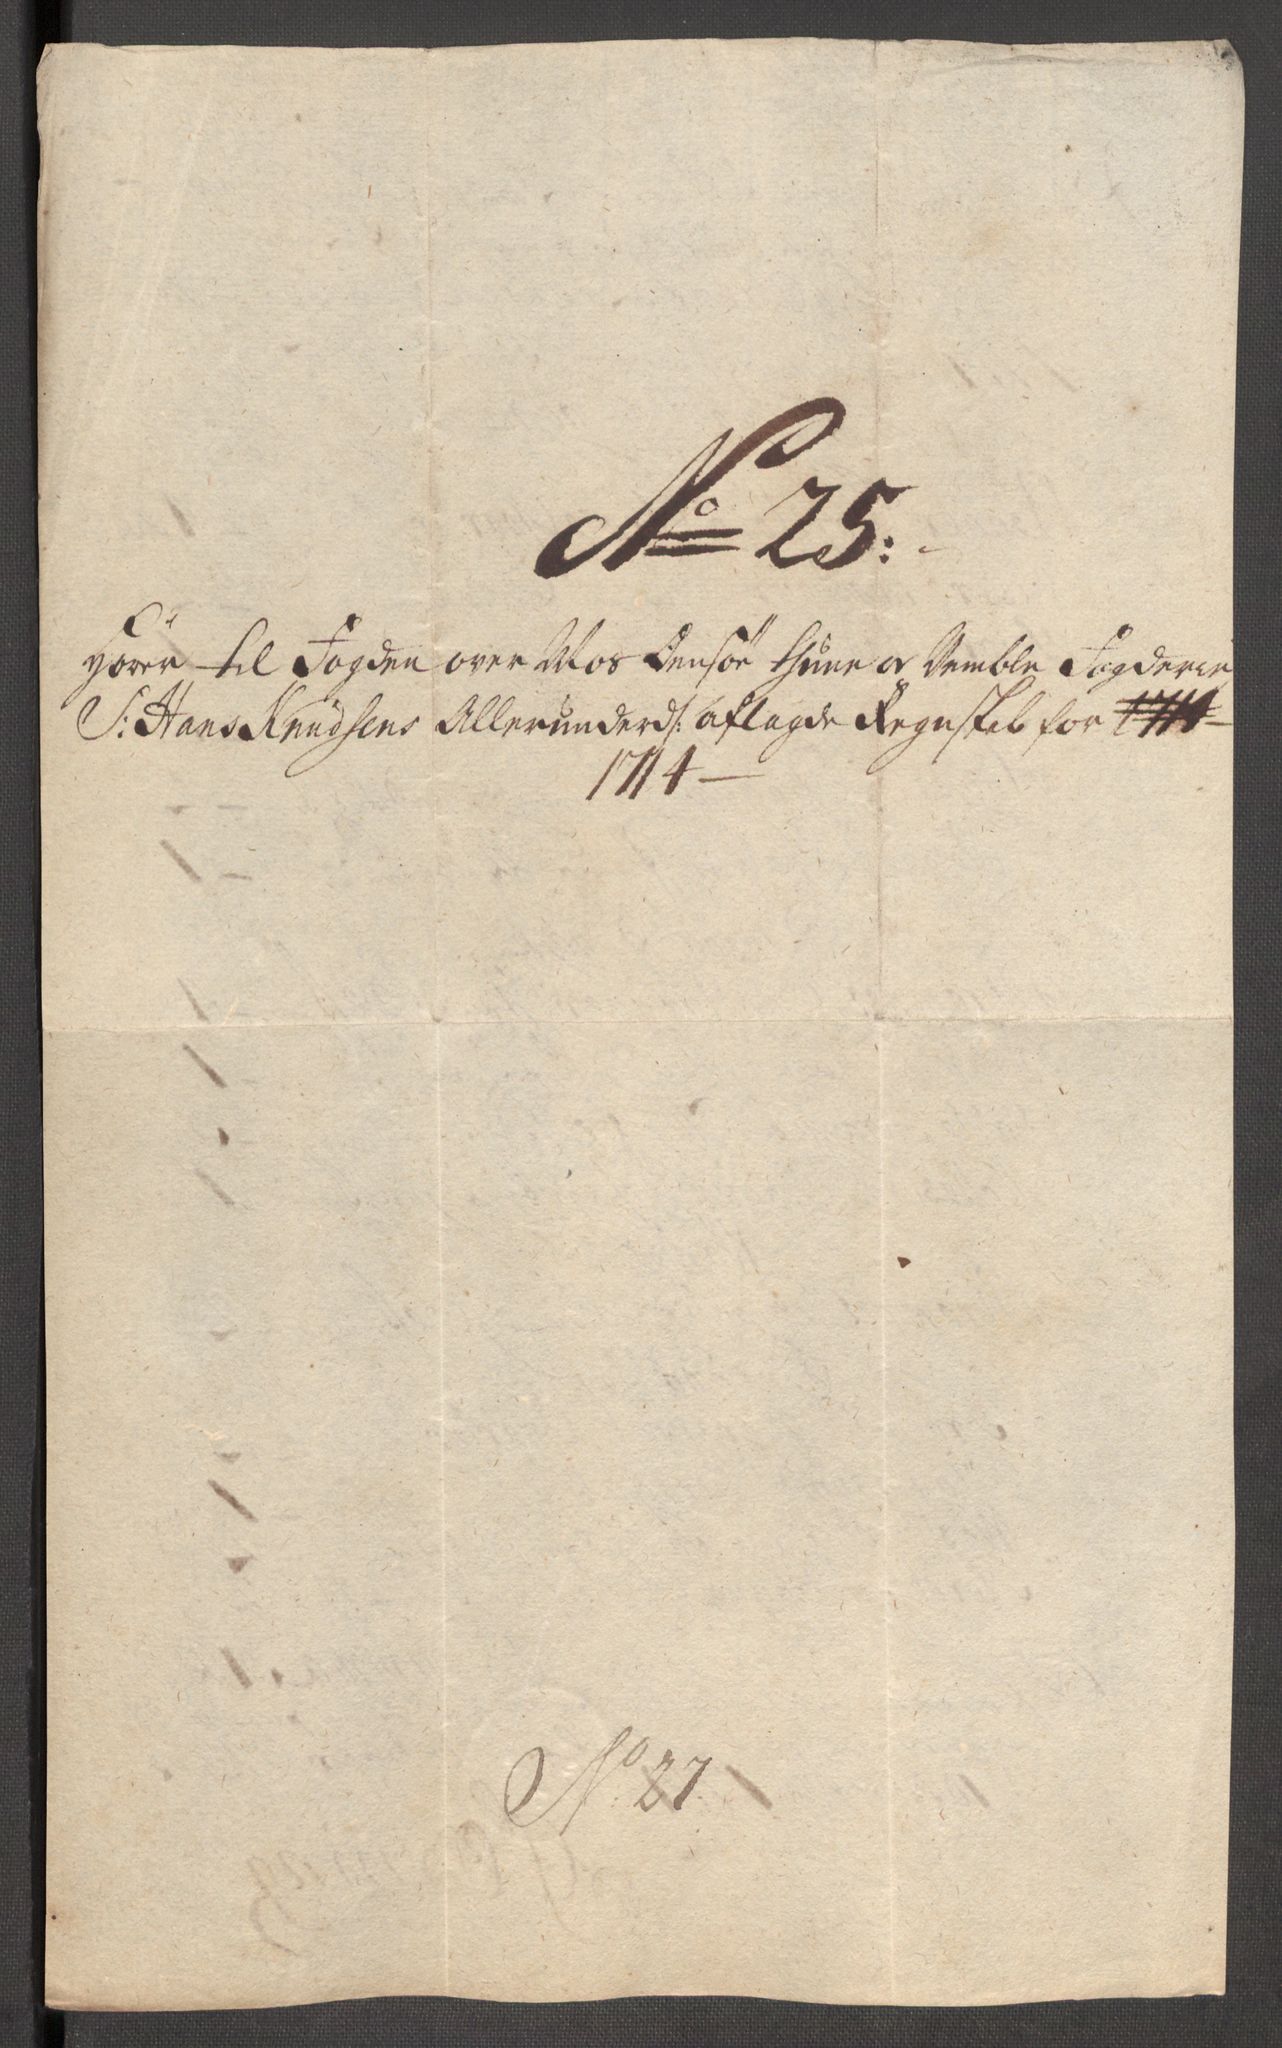 No 25:
Hører til Fogden over Mos Onsøe thune og Vemble Fogderie
S: Hans Knudsens Allerunderd: aflagde Regnskab for 1714
1714
No 27